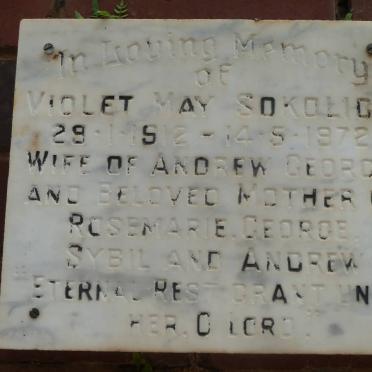 In Loving Memory
of
VIOLET MAY SOKOLIC
29·1·1912 – 14·5·1972
WIFE OF ANDREW GEORG
AND BELOVED MOTHER
ROSEMARIE, GEORGE,
SYBIL AND ANDREW
"ETERNAL REST GRANT UN
HER, O LORD."